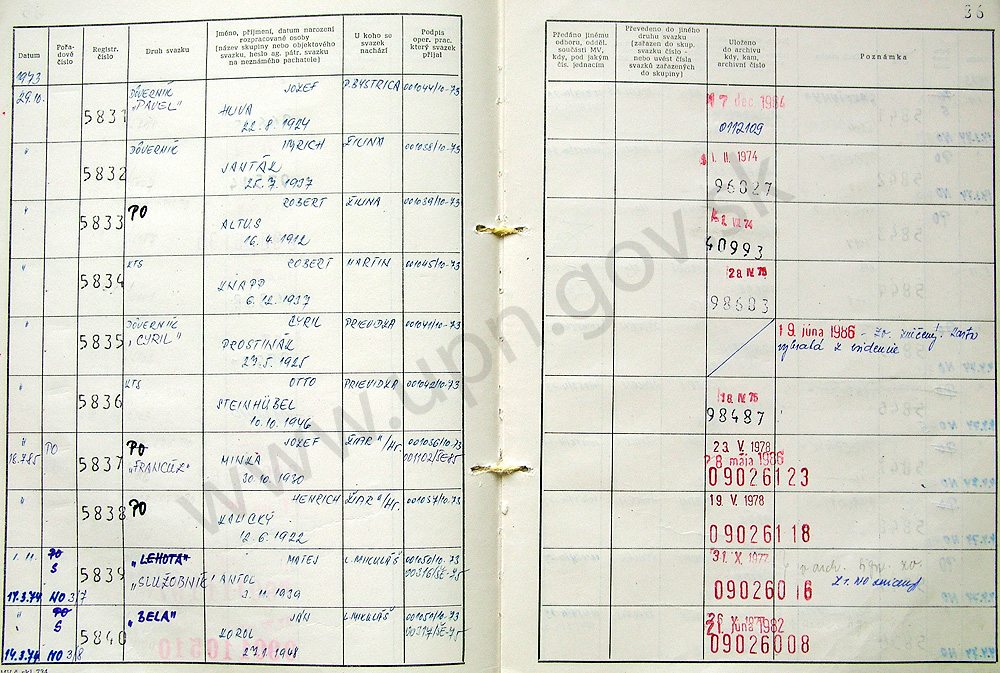 36
Datum
Pořa-
dové
číslo
Registr.
číslo
Druh svazku
Jméno, příjmení, datum narození
rozpracované osoby
(název skupiny nebo objektového
svazku, heslo ag. pátr. svazku
na neznámého pachatele)
U koho se
svazek
nachází
Podpis
oper. prac.
který svazek
přijal
Předáno jinému
odboru, odděl.
součásti MV,
kdy, pod jakým
čís. jednacím
Převedeno do jiného
druhu svazku
(zařazen do skup.
svazku číslo -
nebo uvést čísla
svazků zařazených
do skupiny)
Uloženo
do archivu
kdy, kam,
archivní číslo
Poznámka
1973
29.10. 5831 DÔVERNÍK „PAVEL" JOZEF P. BYSTRICA 001044/10-73
HLIVA
22. 8. 1924
17 dec. 1984
0112109
" 5832 DÔVERNÍK IMRICH ŽILINA 001038/10-73
JANTÁK
25. 7. 1937
1. II. 1974
96027
" 5833 PO ROBERT ŽILINA 001039/10-73
ALTUS
16. 4. 1912
VII 74
40993
" 5834 KTS ROBERT MARTIN 001045/10-73
KNAPP
6. 12. 1937
28. IV. 75
98603
" 5835 DÔVERNÍK „CYRIL" CYRIL PRIEVIDZA 001041/10-73
PROSTINÁK
23. 5. 1925
19. júna 1986 - zv. zničený.
z evidencie
" 5836 KTS OTTO PRIEVIDZA 001042/10-73
STEINHÜBEL
10. 10. 1946
18. IV. 75
98487
" 5837 PO JOZEF ŽIAR n/Hr. 001036/10-73
18.7.85 PO „FRANCÚZ" MINKA 001102/ŠE-85
30. 10. 1930
23. V. 1978
28 mája 1986
09026123
" 5838 PO HENRICH ŽIAR n/Hr. 001037/10-73
KALICKÝ
12. 6. 1922
19. V. 1978
09026118
1. 11. PO 5839 „LEHOTA" MATEJ L. MIKULÁŠ 001050/10-73
S „SLUŽOBNÍK" ANTOL 00316/ŠE-75
3. 11. 1939
14.3.74 NO 3/7
31. X. 1977
09026016
v arch.
" PO 5840 „BELA" JÁN L. MIKULÁŠ
S KOROL 00317/ŠE-75
27. 1. 1948
14.3.74 NO 3/8
21. júna 1982
09026008
www.upn.gov.sk